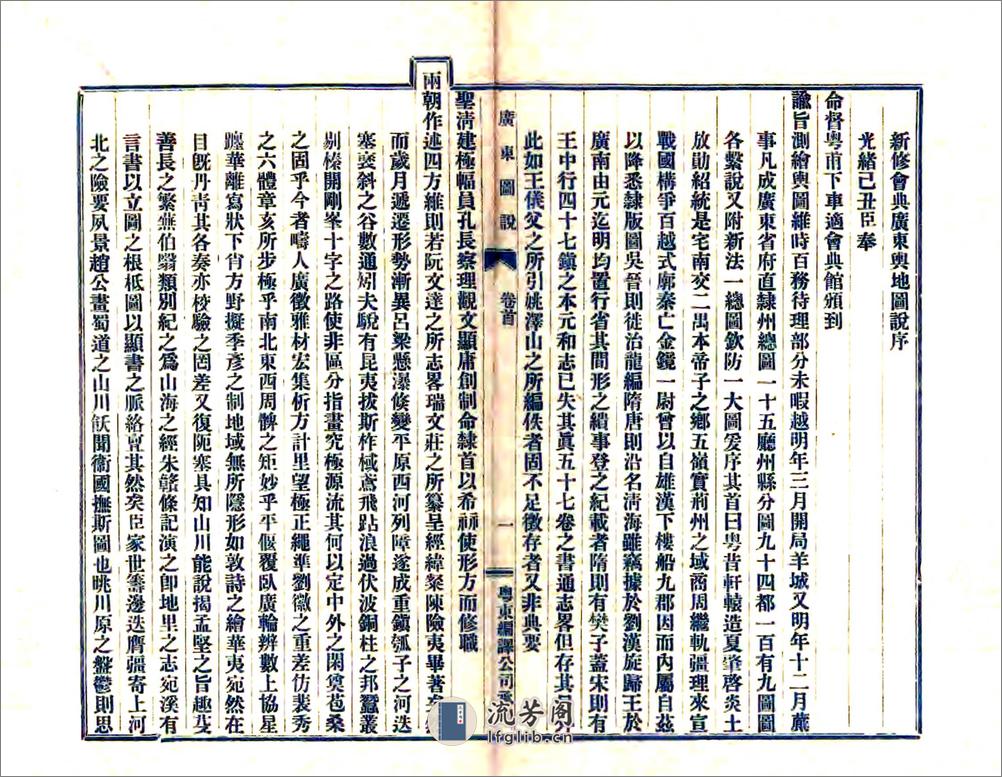 新修會典廣東輿地圖說序
光緒己丑臣奉
命督粵甫下車適會典館頒到
諭旨測繪輿圖維時百務待理部分未暇越明年三月開局羊城又明年十二月蕆
事凡成廣東省府直隸州總圖一十五廳州縣分圖九十四都一百有九圖圖
各繫說又附新法一總圖欽防一大圖爰序其首曰粵昔軒轅造夏肇啓炎土
放勛紹統是宅南交二禺本帝子之鄉五嶺實荊州之域商周繼軌疆理來宣
戰國構爭百越式廓秦亡金鏡一尉曾以自雄漢下樓船九郡因而內屬自茲
以降悉隸版圖吳晉則徙治龍編隋唐則沿名淸海雖竊據於劉漢旋歸王於
廣南由元迄明均置行省其間形之繢事登之紀載者隋則有樊子蓋宋則有
王中行四十七鎭之本元和志已失其眞五十七卷之書通志畧但存其
此如王儀父之所引姚澤山之所編佚者固不足徵存者又非典要
廣東圖說
卷首
一
粵東編譯公司承
聖淸建極幅員孔長察理觀文顯庸創制命隸首以希祘使形方而修職
兩朝作述四方維則若阮文達之所志畧瑞文莊之所纂呈經緯桼陳險夷畢著
而歲月遞遷形勢漸異呂梁懸瀑倏變平原西河列障遂成重鎭瓠子之河迭
塞褒斜之谷數通矧夫駾有昆夷拔斯柞棫鳶飛跕浪過伏波銅柱之邦蠶叢
剔榛開剛峯十字之路使非區分指畫究極源流其何以定中外之閑奠苞桑
之固乎今者疇人廣徵雅材宏集析方計里望極正繩準劉徽之重差仿裴秀
之六體章亥所步極乎南北東西周髀之矩妙乎平偃覆臥廣輪辨數上協星
躔華離寫狀下肖方野擬季彥之制地域無所隱形如敦詩之繪華夷宛然在
目旣丹靑其各奏亦校驗之罔差又復阨塞具知山川能說揭孟堅之旨趣芟
善長之繁蕪伯翳類別紀之爲山海之經朱贛條記演之卽地里之志宛溪有
言書以立圖之根柢圖以顯書之脈絡亶其然矣臣家世籌邊迭膺疆寄上河
北之險要夙景趙公畫蜀道之山川飫聞衞國撫斯圖也眺川原之盤鬱則思
流芳阁
lfglib.cn